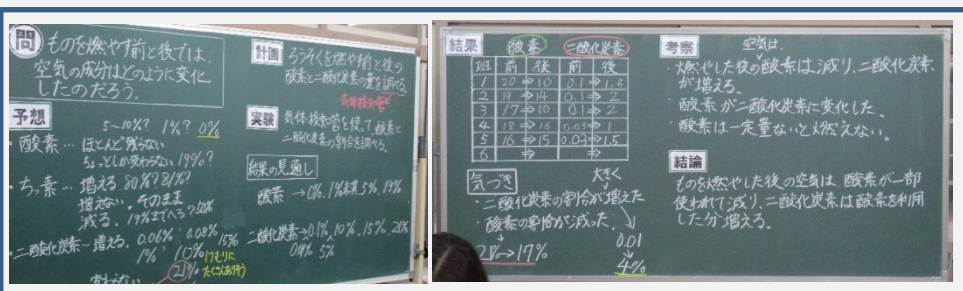 問 ものを燃やす前と後では、
空気の成分はどのように変化
したのだろう。
予想
5~10%? 1%? 0%
・酸素… ほとんど残らない
ちょっとしか変わらない 19%?
・ちっ素… 増える 80%?81%?
増えない そのまま
減る。19%までへる?50%
・二酸化炭素…増える。0.06% 0.08% 15%
1% 10% けむりに
21% たくさんありそう
変わらない
計画 ろうそくを燃やす前と後の
酸素と二酸化炭素の量を調べる。
気体検知管
実験 気体検知管を使って酸素と
二酸化炭素の割合を調べる。
結果の見通し
酸素 →0%、1%未満、5%、19%
二酸化炭素→0.1%、10%、15%、21%
5%
結果 酸素 二酸化炭素
班 前 後 前 後
1 20⇒10 0.1⇒1.5
2 19⇒14 0.1⇒2
3 17⇒10 0.1⇒2
4 18⇒16 0.03⇒1
5 16⇒15 0.03⇒1.5
6 ⇒ ⇒
気づき 大きく
・二酸化炭素の割合が増えた
・酸素の割合が減った。
21%→17%
0.01
4%
考察 空気は、
・燃やした後の酸素は減り、二酸化炭素
が増える。
・酸素が二酸化炭素に変化した。
・酸素は一定量ないと燃えない。
結論
ものを燃やした後の空気は、酸素が一部
使われて減り、二酸化炭素は酸素を利用
した分増える。